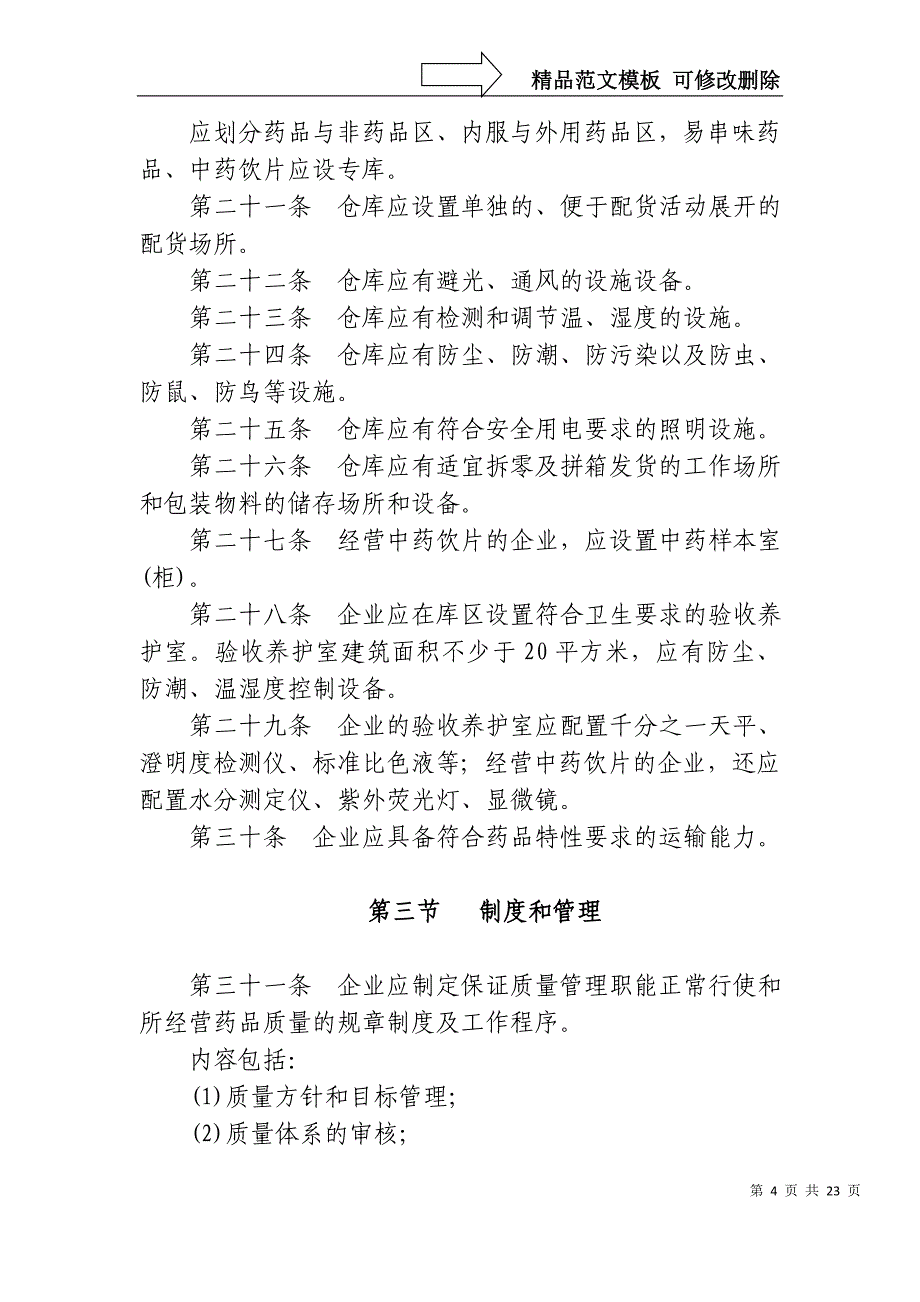 精品范文模板 可修改删除
应划分药品与非药品区、内服与外用药品区，易串味药
品、中药饮片应设专库。
第二十一条　仓库应设置单独的、便于配货活动展开的
配货场所。
第二十二条　仓库应有避光、通风的设施设备。
第二十三条　仓库应有检测和调节温、湿度的设施。
第二十四条　仓库应有防尘、防潮、防污染以及防虫、
防鼠、防鸟等设施。
第二十五条　仓库应有符合安全用电要求的照明设施。
第二十六条　仓库应有适宜拆零及拼箱发货的工作场所
和包装物料的储存场所和设备。
第二十七条　经营中药饮片的企业，应设置中药样本室
(柜)。
第二十八条　企业应在库区设置符合卫生要求的验收养
护室。验收养护室建筑面积不少于20平方米，应有防尘、
防潮、温湿度控制设备。
第二十九条　企业的验收养护室应配置千分之一天平、
澄明度检测仪、标准比色液等；经营中药饮片的企业，还应
配置水分测定仪、紫外荧光灯、显微镜。
第三十条　企业应具备符合药品特性要求的运输能力。
第三节　制度和管理
第三十一条　企业应制定保证质量管理职能正常行使和
所经营药品质量的规章制度及工作程序。
内容包括：
(1)质量方针和目标管理；
(2)质量体系的审核；
第 4 页 共 23 页